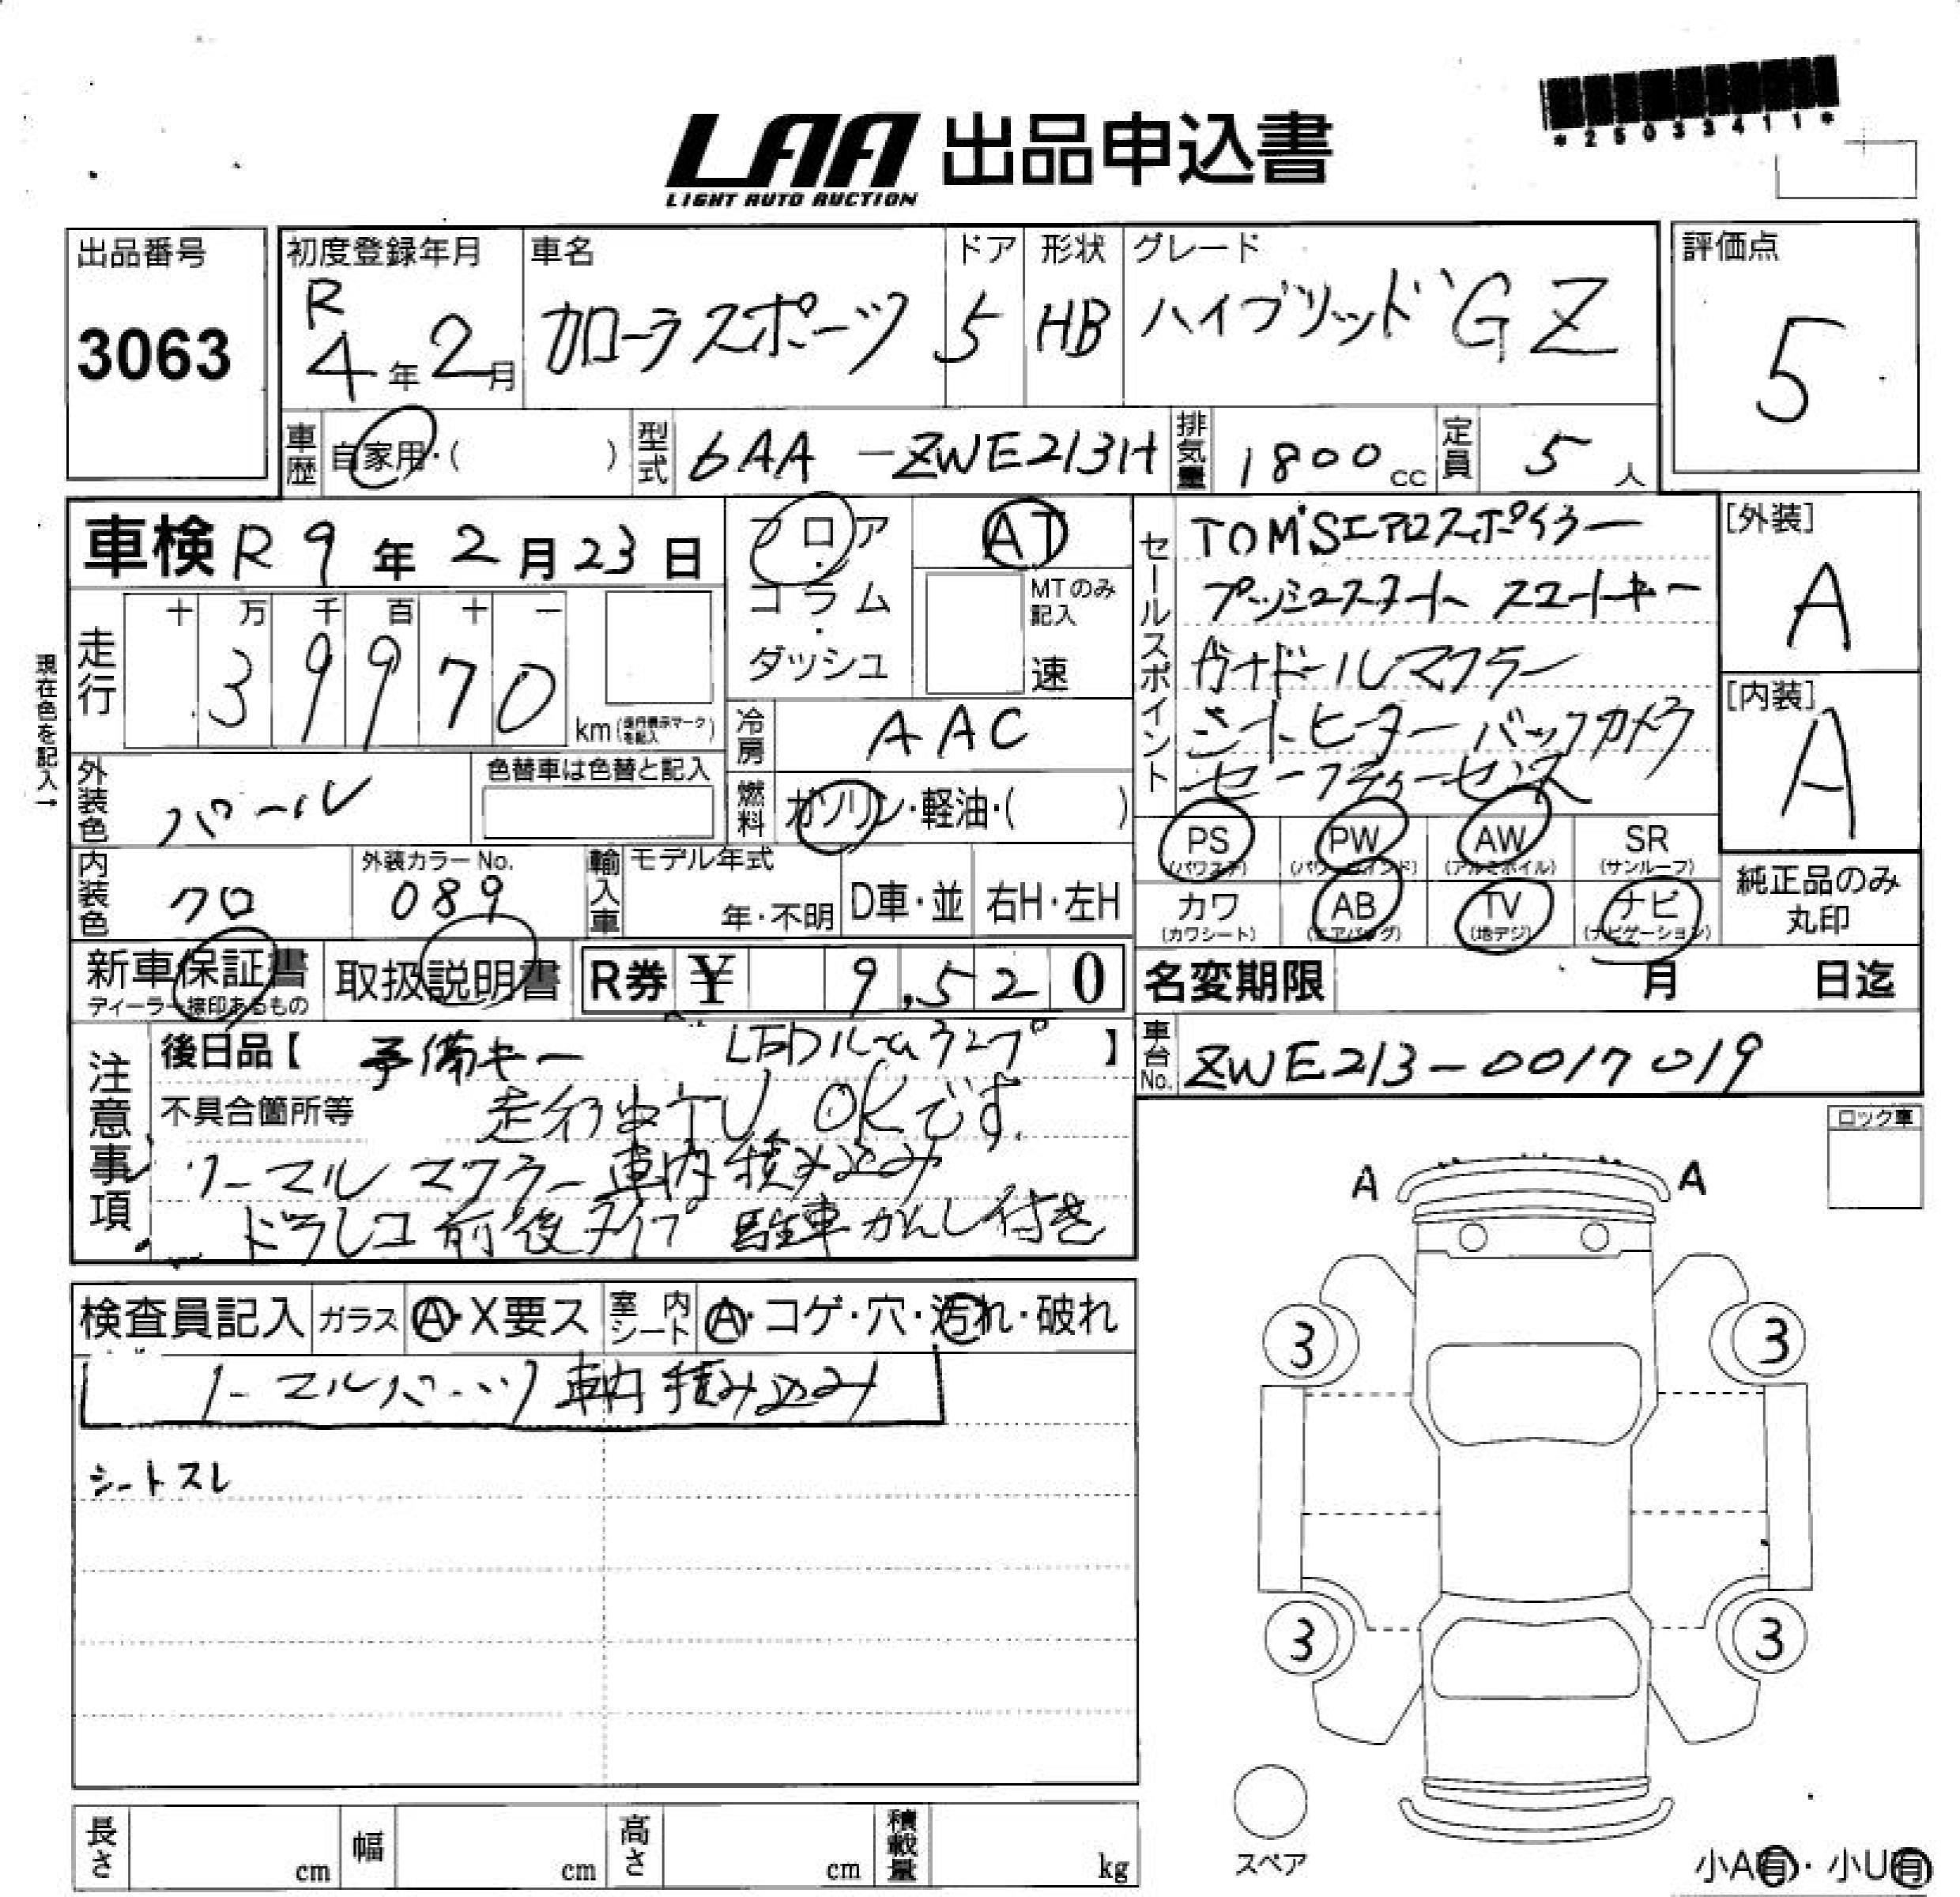 *25033411*
LAA 出品申込書
LIGHT AUTO AUCTION
出品番号
3063
初度登録年月
R
4年2月
車名
カローラスポーツ
ドア
5
形状
HB
グレード
ハイブリッドGZ
評価点
5
車歴 自家用・( )
型式 6AA-ZWE213H
排気量 1800cc
定員 5人
車検 R9年2月23日
フロア・コラム・ダッシュ
AT
MTのみ記入
速
現在色を記入→
走行
十 万 千 百 十 一
39970
km(走行表示マークを記入)
冷房 AAC
外装色 パール
色替車は色替と記入
燃料 ガソリン・軽油・( )
内装色 クロ
外装カラーNo.
089
輸入車
モデル年式
年・不明
D車・並
右H・左H
セールスポイント
TOM'Sエアロスポイラー
プッシュスタート スマートキー
ガナドールマフラー
シートヒーター バックカメラ
セーフティーセンス
PS (パワステ)
PW (パワーウインド)
AW (アルミホイル)
SR (サンルーフ)
カワ (カワシート)
AB (エアバッグ)
TV (地デジ)
ナビ (ナビゲーション)
[外装]
A
[内装]
A
純正品のみ
丸印
新車保証書
ディーラー捺印あるもの
取扱説明書
R券 ¥ 9,520
名変期限 月 日迄
車台No. ZWE213-0017019
注意事項
後日品【 予備キー LEDルームランプ 】
不具合箇所等 走行中TV OKです.
ノーマルマフラー車内積み込み
ドラレコ前後タイプ 駐車かんし付き
検査員記入
ガラス A・X要ス
室内シート A・コゲ・穴・汚れ・破れ
ノーマルパーツ車内積み込み
シートスレ
ロック車
A A
3 3
3 3
スペア
小A有・小U有
長さ cm
幅 cm
高さ cm
積載量 kg